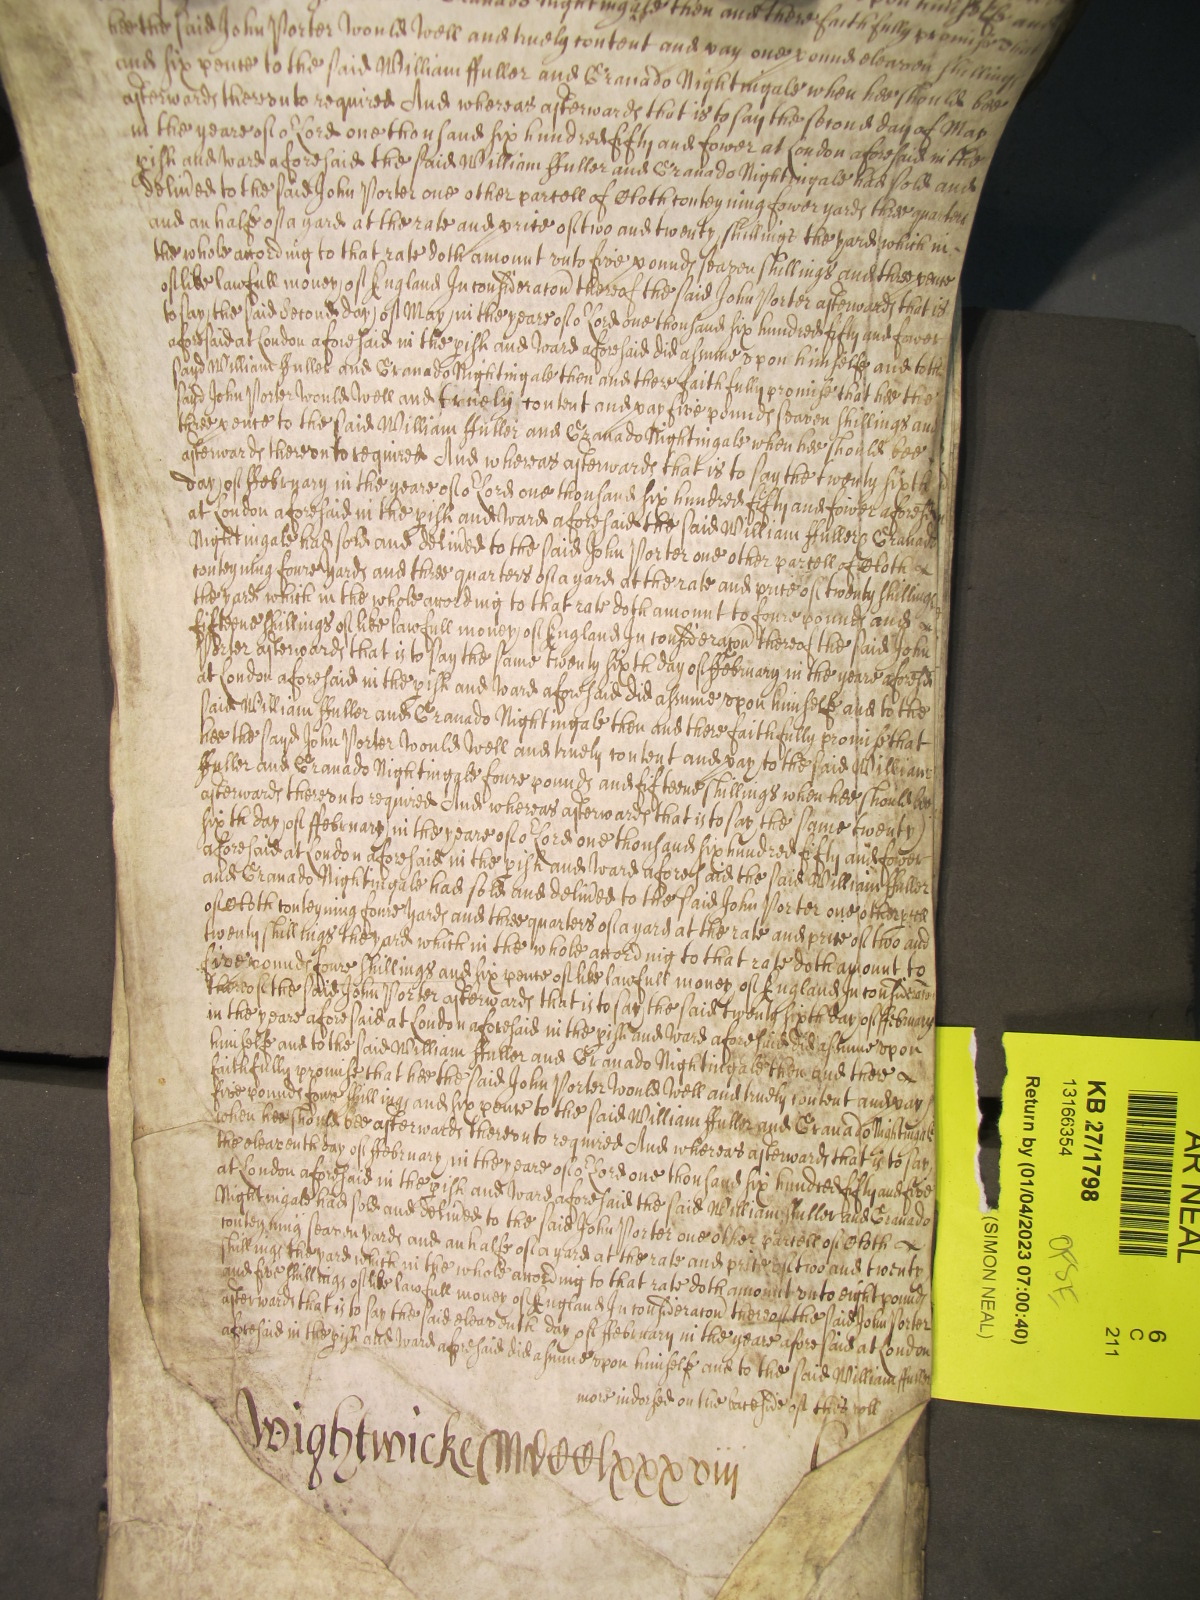 Granado Nightingale then and there faithfully promise that
hee the said John Porter would well and truely content and pay one pound eleaven shillings
and six pence to the said William ffuller and Granado Nightingale when hee should bee
afterwards thereonto required And whereas afterwards that is to say the second day of May
in the yeare of or Lord one thousand six hundred fifty and fower at London aforesaid in the
pish and ward aforesaid the said William ffuller and Granado Nightingale had sold and
delived to the said John Porter one other parcell of Cloth conteyning fower yards three quarters
and an halfe of a yard at the rate and price of two and twenty shillings the yard which in
the whole according to that rate doth amount vnto five pounds seaven shillings and three pence
of like lawfull money of England In consideracon thereof the said John Porter afterwards that is
to say the said second day of May in the yeare of or Lord one thousand six hundred fifty and fower
aforesaid at London aforesaid in the pish and ward aforesaid did assume vpon himselfe and to the
sayd William ffuller and Granado Nightingale then and there faithfully promise that hee the
said John Porter would well and truely content and pay five pounds seaven shillings and
three pence to the said William ffuller and Granado Nightingale when hee should bee
afterwards thereonto required And whereas afterwards that is to say the twenty sixth
day of ffebruary in the yeare of or Lord one thousand six hundred fifty and fower aforesd
at London aforesaid in the pish and ward aforesaid the said William ffuller & Granado
Nightingale had sold and delived to the said John Porter one other parcell of Cloth
conteyning foure yards and three quarters of a yard at the rate and price of twenty shillings
the yard which in the whole according to that rate doth amount to foure pounds and
fifteene shillings of like lawfull money of England In consideracon thereof the said John
Porter afterwards that is to say the same twenty sixth day of ffebruary in the yeare aforesd
at London aforesaid in the pish and ward aforesaid did assume vpon himselfe and to the
said William ffuller and Granado Nightingale then and there faithfully promise that
hee the sayd John Porter would well and truely content and pay to the said William
ffuller and Granado Nightingale foure pounds and fifteene shillings when hee should bee
afterwards thereonto required And whereas afterwards that is to say the same twenty
sixth day of ffebruary in the yeare of or Lord one thousand six hundred fifty and fower
aforesaid at London aforesaid in the pish and ward aforesaid the said William ffuller
and Granado Nightingale had sold and delived to the said John Porter one other pcell
of Cloth conteyning foure yards and three quarters of a yard at the rate and price of two and
twenty shillings the yard which in the whole according to that rate doth amount to
five pounds foure shillings and six pence of like lawfull money of England In consideracon
thereof the said John Porter afterwards that is to say the said twenty sixth day of ffebruary
in the yeare aforesaid at London aforesaid in the pish and ward aforesaid did assume vpon
himselfe and to the said William ffuller and Granado Nightingale then and there
faithfully promise that hee the said John Porter would well and truely content and pay
five pounds foure shillings and six pence to the said William ffuller and Granado Nightingale
when hee should bee afterwards thereonto required And whereas afterwards that is to say
the eleaventh day of ffebruary in the yeare of or Lord one thousand six hundred fifty and five
at London aforesaid in the pish and ward aforesaid the said William ffuller and Granado
Nightingale had sold and delived to the said John Porter one other parcell of Cloth
conteyning seaven yards and an halfe of a yard at the rate and price of two and twenty
shillings the yard which in the whole according to that rate doth amount vnto eight pounds
and five shillings of like lawfull money of England In consideracon thereof the said John Porter
afterwards that is to say the said eleaventh day of ffebruary in the yeare aforesaid at London
aforesaid in the pish and ward aforesaid did assume vpon himselfe and to the said William ffuller
more indorsed on the backside of this roll
Wightwicke MDCClxxxxviii
AR NEAL
6
C
211
KB 27/1798
13166354
Return by (01/04/2023 07:00:40)
(SIMON NEAL)